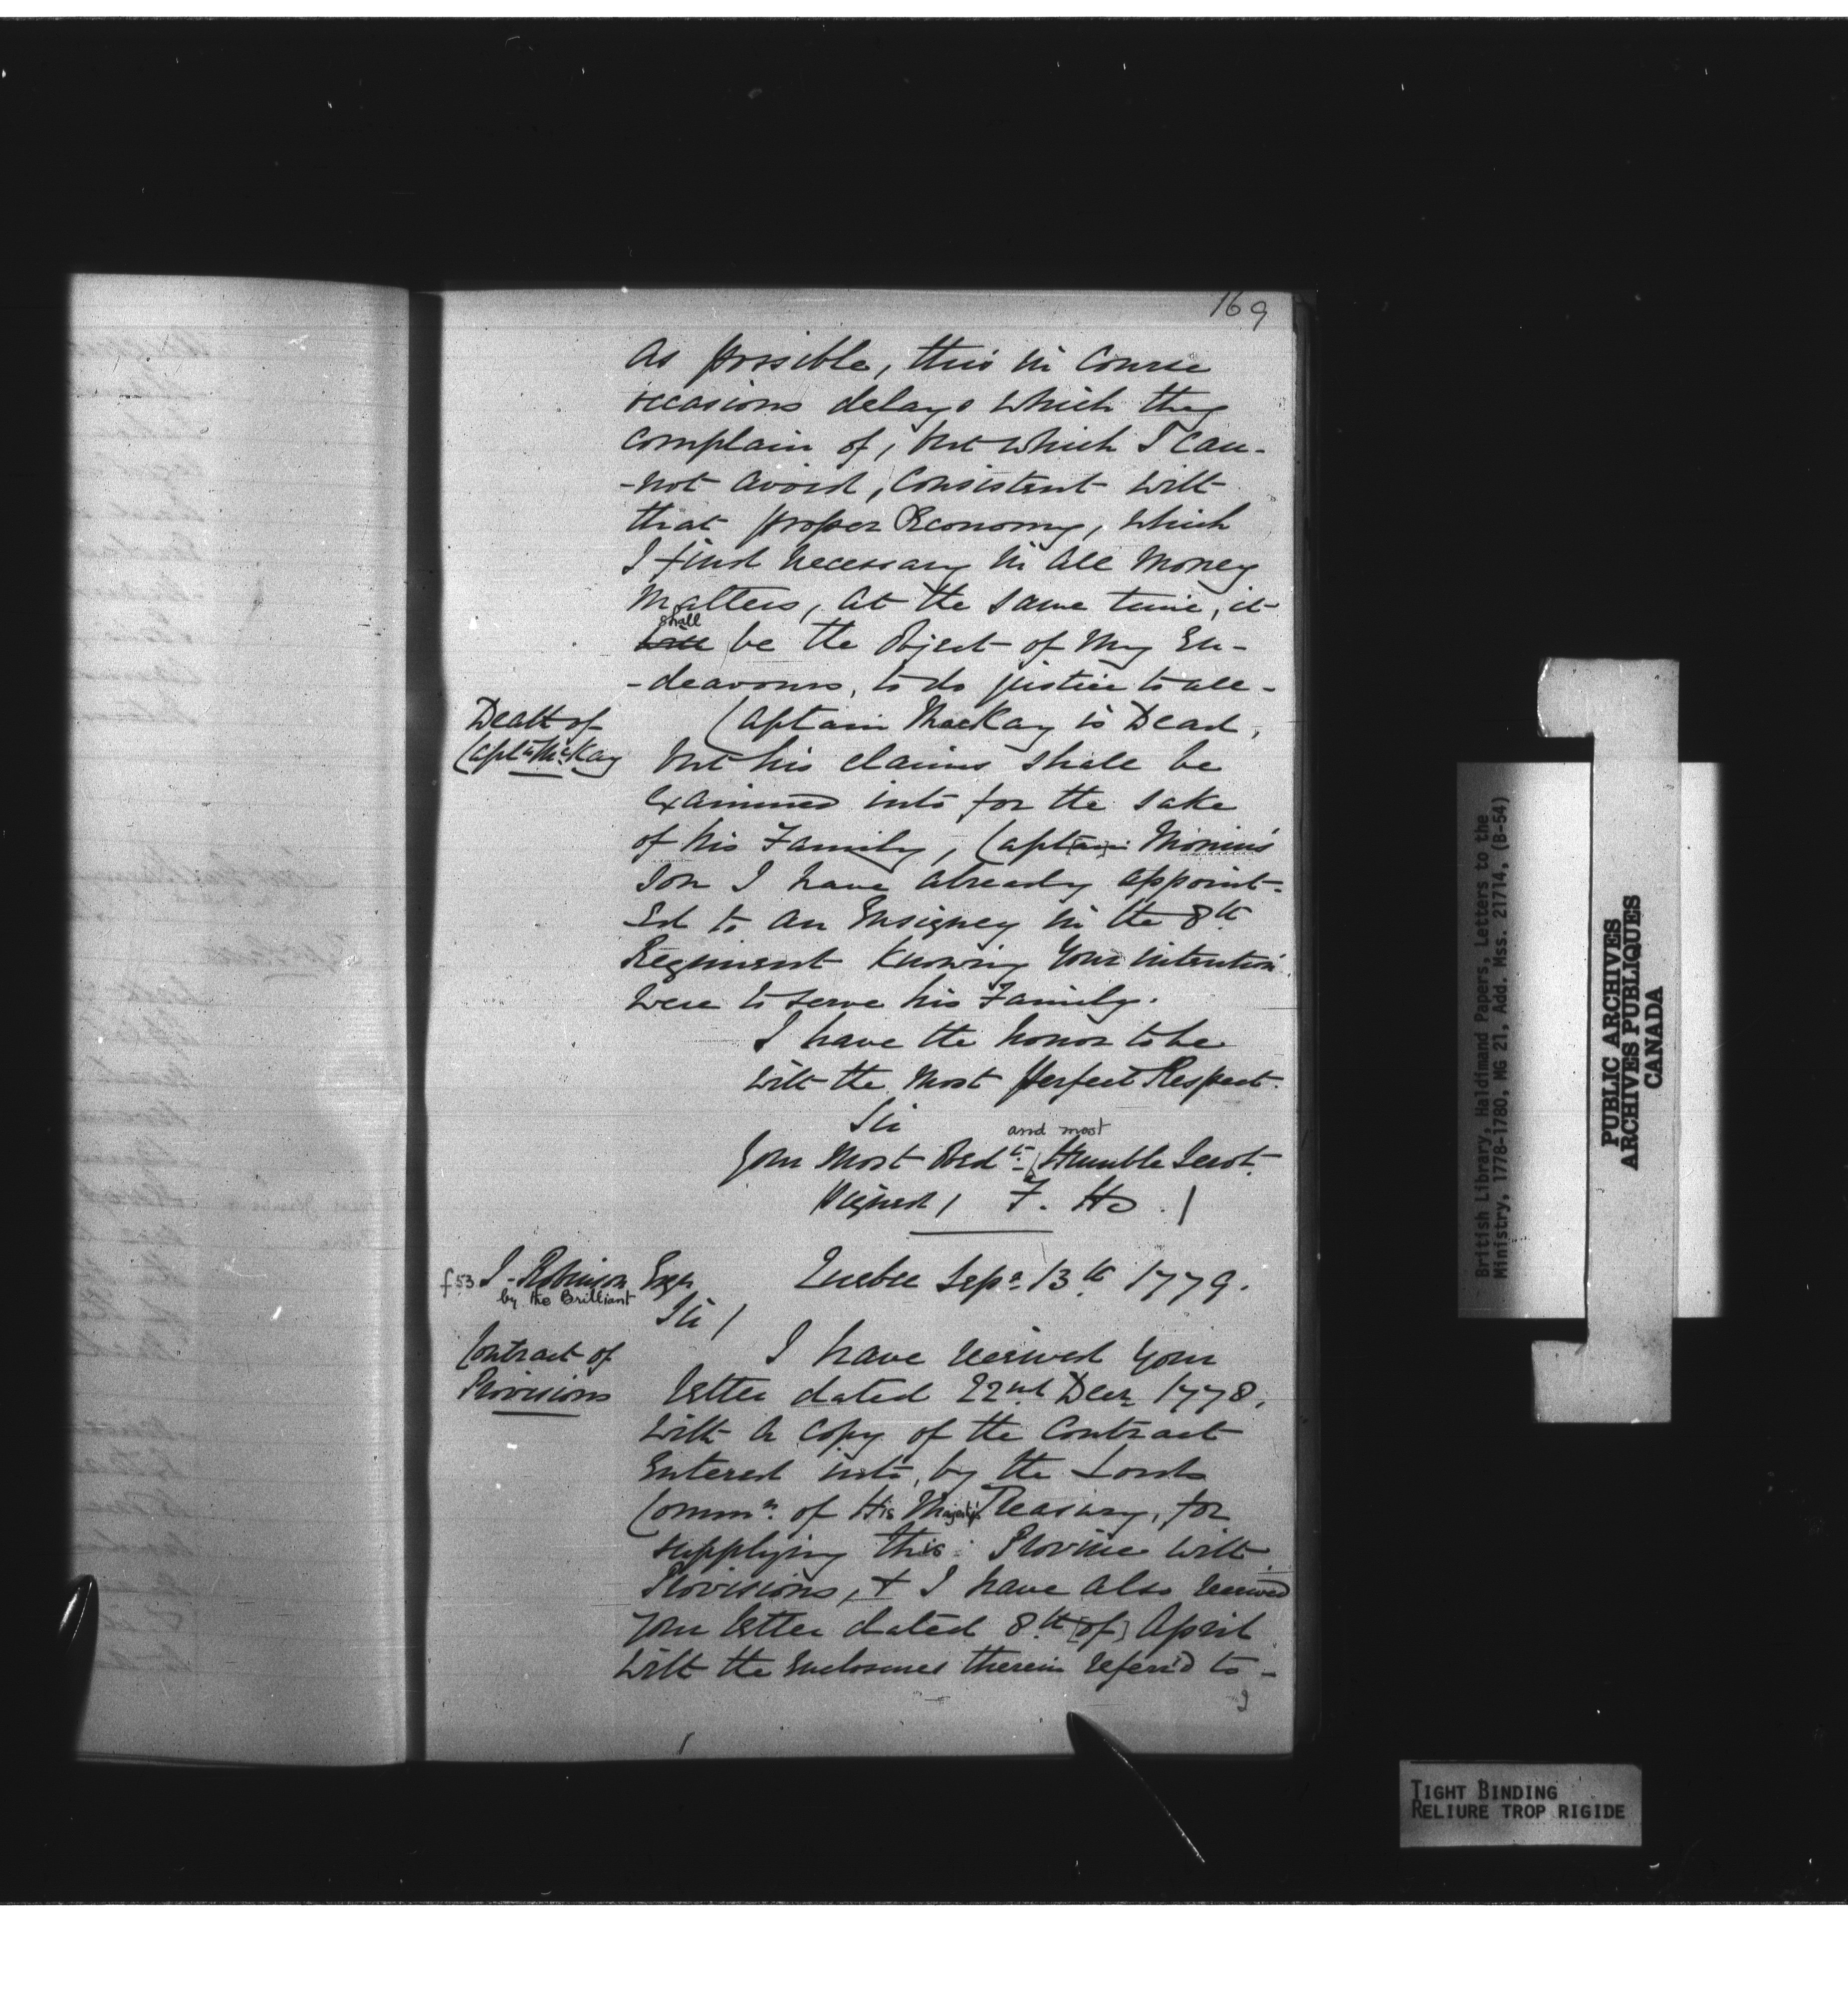 169
as possible, this in Course
occasions delays which they
complain of, but which I can-
-not avoid, Consistent with
that proper Œconomy, which
I find necessary in all Money
Matters, at the same time, it
shall
will be the Object of my En-
-deavours, to do justice to all -
Death of
Captn McKay
Captain MacKay is Dead,
but his claims shall be
examined into for the sake
of his Family, Captain Monin's
son I have already appoint-
Ed to an Ensigncy in the 8th
Regiment Knowing Your intention
were to serve his Family.
I have the honor to be
with the most perfect Respect.
Sir
and most
Your Most Obedt Humble Servt.
(Signed) F. H.
f53 J. Robinson Esqr
by the Brilliant
Quebec Sepr 13th 1779.
Sir /
Contract of
Provisions
I have received Your
letter dated 22nd Decr 1778,
with a copy of the Contract
Entered into, by the Lords
Commn. of His Majesty's Treasury, for
supplying this Province with
Provisions, & I have also received
your letter dated 8th [of] April
with the Enclosures therein referr'd to -
British Library, Haldimand Papers, Letters to the
Ministry, 1778-1780, MG 21, Add. Mss. 21714, (B-54)
PUBLIC ARCHIVES
ARCHIVES PUBLIQUES
CANADA
TIGHT BINDING
RELIURE TROP RIGIDE